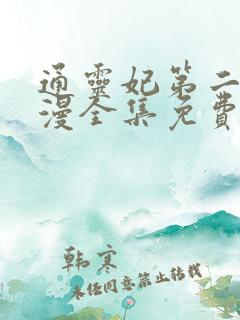 通靈妃第二
漫全集免費
韩寒
未任同意禁止转载